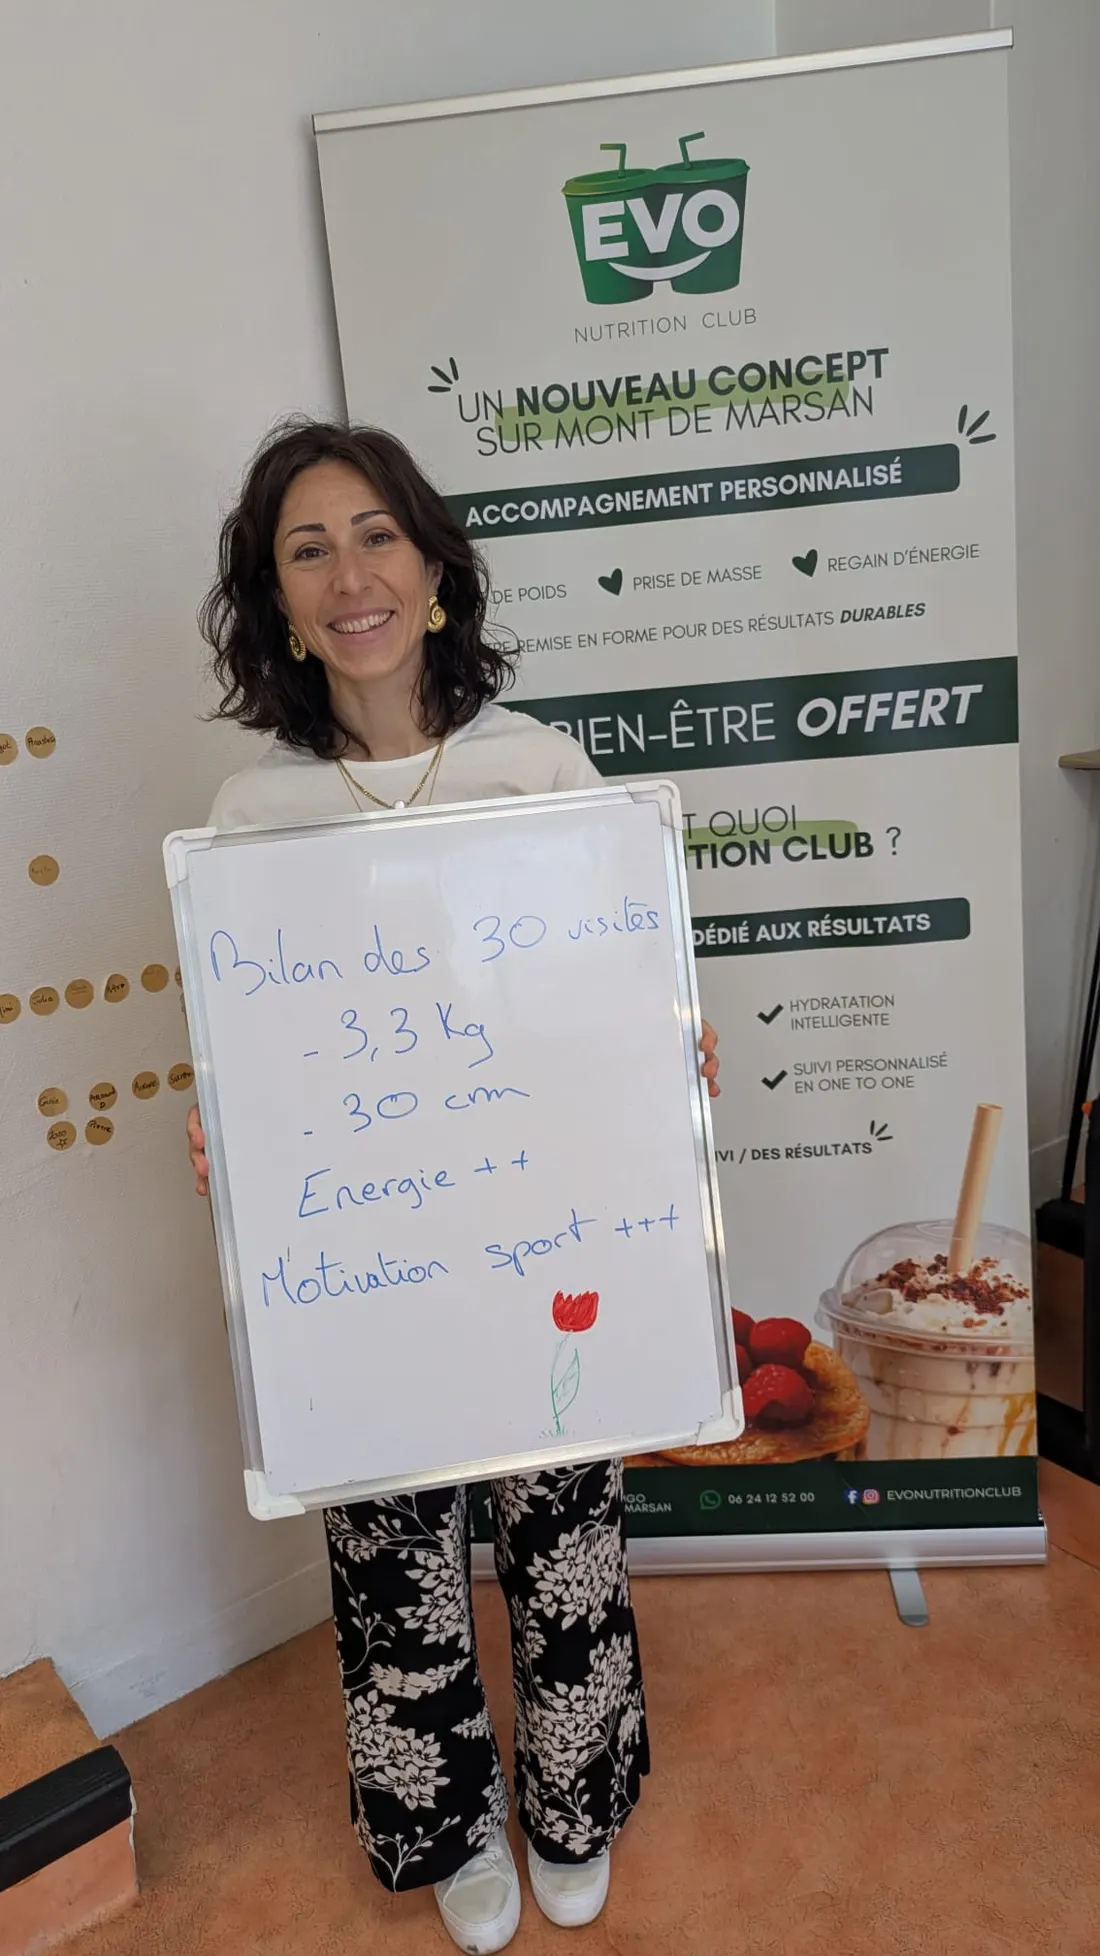 EVO
NUTRITION CLUB
UN NOUVEAU CONCEPT
SUR MONT DE MARSAN
ACCOMPAGNEMENT PERSONNALISÉ
DE POIDS
PRISE DE MASSE
REGAIN D'ÉNERGIE
REMISE EN FORME POUR DES RÉSULTATS DURABLES
BIEN-ÊTRE OFFERT
T QUOI
TION CLUB ?
DÉDIÉ AUX RÉSULTATS
HYDRATATION
INTELLIGENTE
SUIVI PERSONNALISÉ
EN ONE TO ONE
IVI / DES RÉSULTATS
MARSAN
06 24 12 52 00
EVONUTRITIONCLUB
Bilan des 30 visités
- 3,3 Kg
- 30 cm
Energie ++
Motivation sport +++
Julia